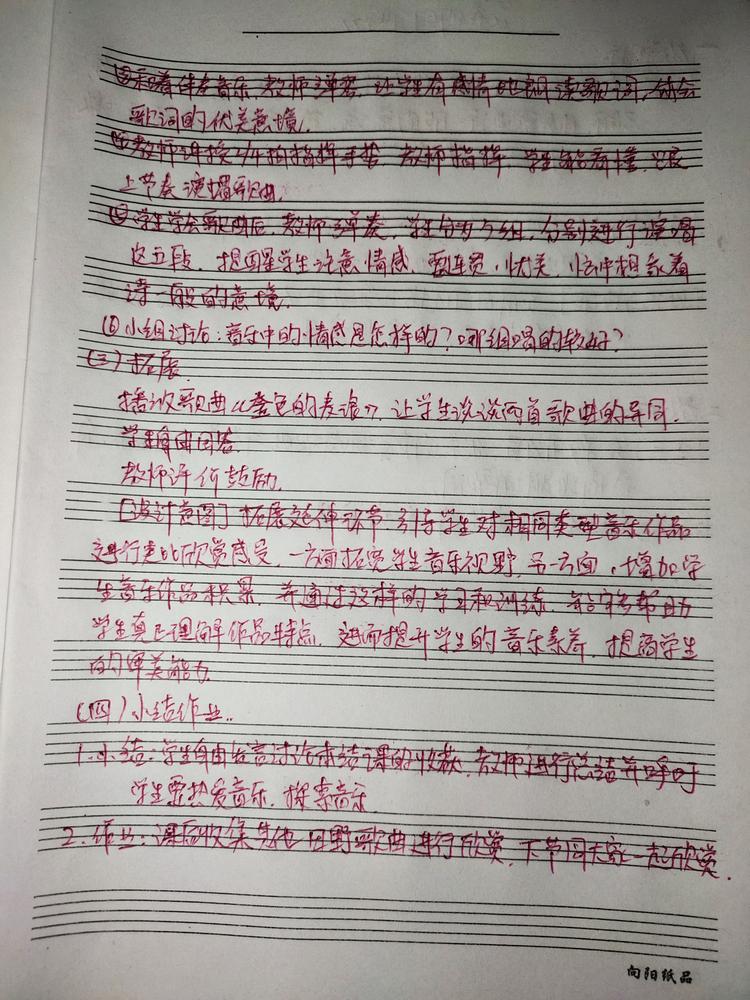 ③和着伴奏音乐,教师弹琴,让学生有感情地朗读歌词,体会
歌词的优美意境.
④教师讲授2/4拍指挥手势,教师指挥,学生能看懂,跟
上节奏演唱歌曲.
⑤学生学会歌曲后,教师弹奏,学生分为5组,分别进行演唱
这五段.提醒星学生注意情感,要连贯,优美,
诗一般的意境.
⑥小组讨论:音乐中的情感是怎样的?哪组唱的较好?
(三)拓展.
播放歌曲《金色的麦浪》.让学生谈谈两首歌曲的异同.
学生自由回答.
教师评价鼓励.
[设计意图]拓展延伸环节,引导学生对相同类型音乐作品
进行类比欣赏感受,一方面拓宽学生音乐视野,另一方面,增加学
生音乐作品积累,并通过这样的学习和训练,能够帮助
学生真正理解作品特点,进而提升学生的音乐素养,提高学生
的审美能力.
(四)小结作业..
1.小结:学生自由发言讨论本结课的收获,教师进行总结并呼吁
学生要热爱音乐,探索音乐
2.作业:课后收集其他田野歌曲进行欣赏,下节同大家一起欣赏.
向阳纸品